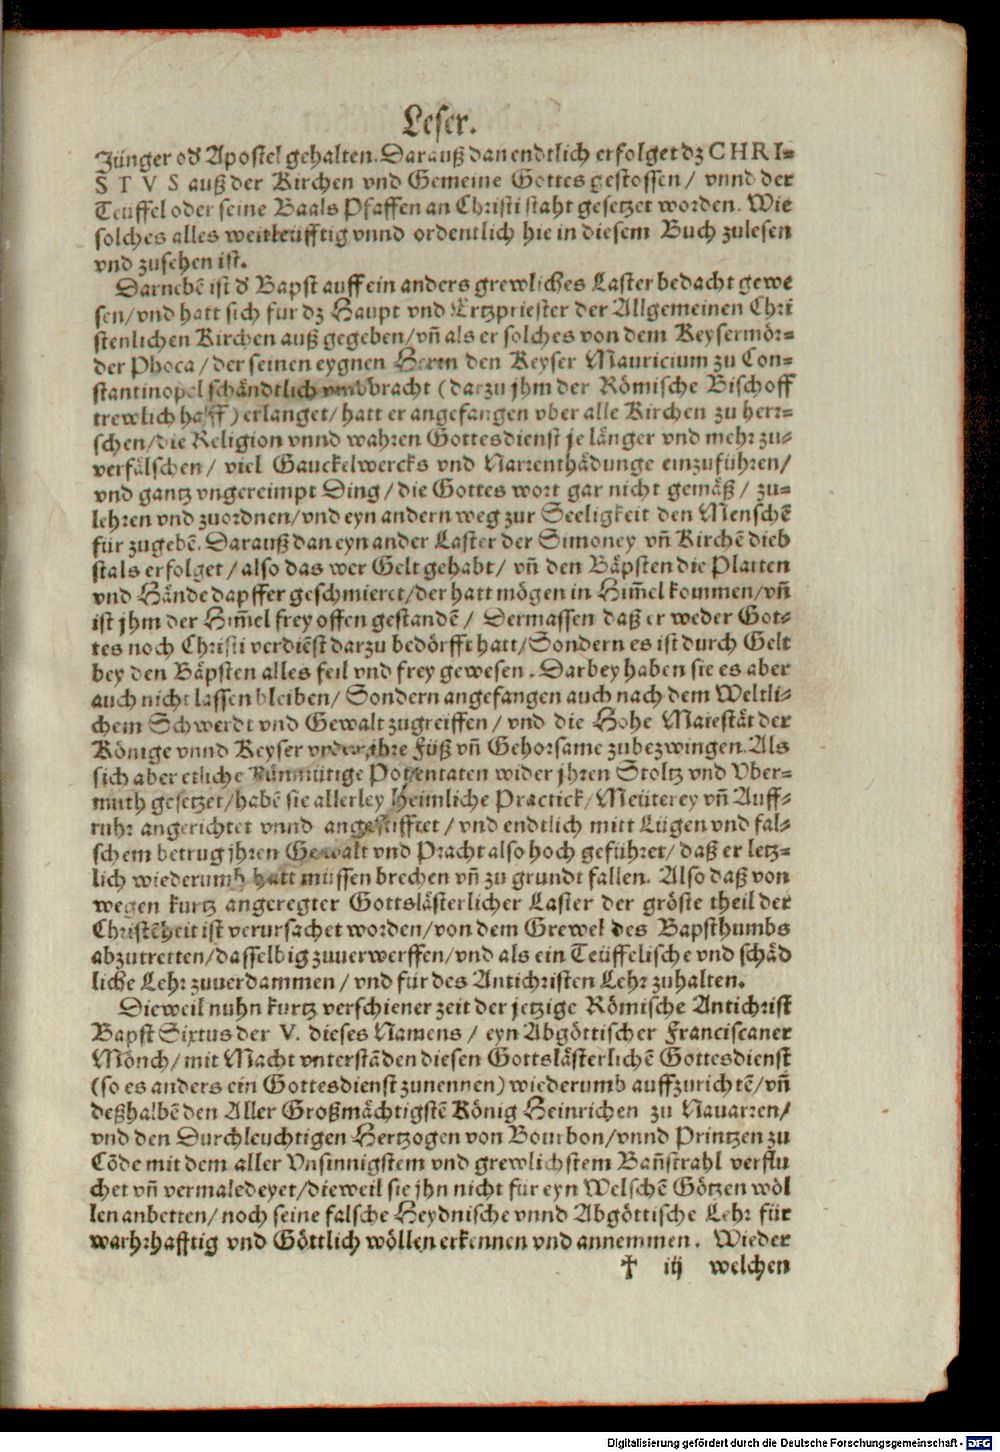 Leser.
Jünger od' Apostel gehalten. Darauß dan endtlich erfolget dz CHRI-
STVS auß der Kirchen vnd Gemeine Gottes gestossen/ vnnd der
Teüffel oder seine Baals Pfaffen an Christi staht gesetzet worden. Wie
solches alles weitleüfftig vnnd ordentlich hie in diesem Buch zulesen
vnd zusehen ist.
Darnebẽ ist d' Bapst auff ein anders grewliches Laster bedacht gewe
sen/ vnd hatt sich für dz Haupt vnd Ertzpriester der Allgemeinen Chri
stenlichen Kirchen auß gegeben/ vñ als er solches von dem Keysermör-
der Phoca/ der seinen eygnen Herrn den Keyser Mauricium zu Con-
stantinopel schändtlich vmbbracht (darzu jhm der Römische Bischoff
trewlich halff) erlanget/ hatt er angefangen vber alle Kirchen zu herr-
schen/ die Religion vnnd wahren Gottesdienst je länger vnd mehr zu-
verfälschen/ viel Gauckelwercks vnd Narrenthädunge einzuführen/
vnd gantz vngereimpt Ding/ die Gottes wort gar nicht gemäß/ zu-
lehren vnd zuordnen/ vnd eyn andern weg zur Seeligkeit den Menschẽ
für zugebẽ. Darauß dan eyn ander Laster der Simoney vñ Kirchẽ dieb
stals erfolget/ also das wer Gelt gehabt/ vñ den Bäpsten die Platten
vnd Hände dapffer geschmieret/ der hatt mögen in Him̃el kommen/ vñ
ist jhm der Him̃el frey offen gestandẽ/ Dermassen daß er weder Got-
tes noch Christi verdiẽst darzu bedörfft hatt/ Sondern es ist durch Gelt
bey den Bäpsten alles feil vnd frey gewesen. Darbey haben sie es aber
auch nicht lassen bleiben/ Sondern angefangen auch nach dem Weltli-
chem Schwerdt vnd Gewalt zugreiffen/ vnd die Hohe Maiestät der
Könige vnnd Keyser vnder jhre Füß vñ Gehorsame zubezwingen. Als
sich aber etliche Künmütige Potentaten wider jhren Stoltz vnd Vber-
muth gesetzet/ habẽ sie allerley Heimliche Practick/ Meüterey vñ Auff-
ruhr angerichtet vnnd angestifftet/ vnd endtlich mitt Lügen vnd fal-
schem betrug jhren Gewalt vnd Pracht also hoch geführet/ daß er letz-
lich wiederumb hatt müssen brechen vñ zu grundt fallen. Also daß von
wegen kurtz angeregter Gottslästerlicher Laster der gröste theil der
Christẽheit ist verursachet worden/ von dem Grewel des Bapsthumbs
abzutretten/ dasselbig zuuerwerffen/ vnd als ein Teüffelische vnd schäd
liche Lehr zuuerdammen/ vnd für des Antichristen Lehr zuhalten.
Dieweil nuhn kurtz verschiener zeit der jetzige Römische Antichrist
Bapst Sixtus der V. dieses Namens/ eyn Abgöttischer Franciscaner
Mönch/ mit Macht vnterstãden diesen Gottslästerlichẽ Gottesdienst
(so es anders ein Gottesdienst zunennen) wiederumb auffzurichtẽ/ vñ
deßhalbẽ den Aller Großmächtigstẽ König Heinrichen zu Nauarren/
vnd den Durchleuchtigen Hertzogen von Bourbon/ vnnd Printzen zu
Cõde mit dem aller Vnsinnigstem vnd grewlichstem Bañstrahl verflu
chet vñ vermaledeyet/ dieweil sie jhn nicht für eyn Welschẽ Götzen wöl
len anbetten/ noch seine falsche Heydnische vnnd Abgöttische Lehr für
warhrhafftig vnd Göttlich wöllen erkennen vnd annemmen. Wieder
† iij welchen
Digitalisierung gefördert durch die Deutsche Forschungsgemeinschaft - DFG